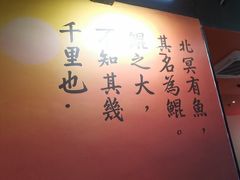 北冥有魚，
其名為鯤。
鯤之大，
不知其幾
千里也．